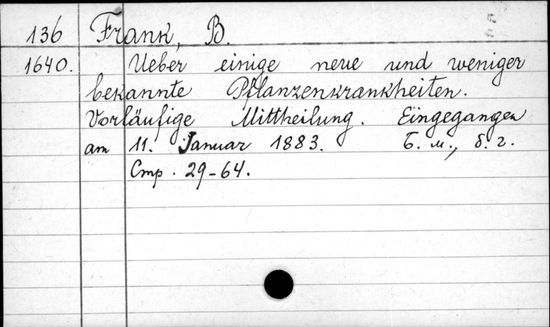 136 Frank, B.
1640. Ueber einige neue und weniger
bekannte Pflanzenkrankheiten.
Vorläufige Mittheilung. Eingegangen
am 11. Januar 1883. Б. м., б. г.
Стр. 29-64.